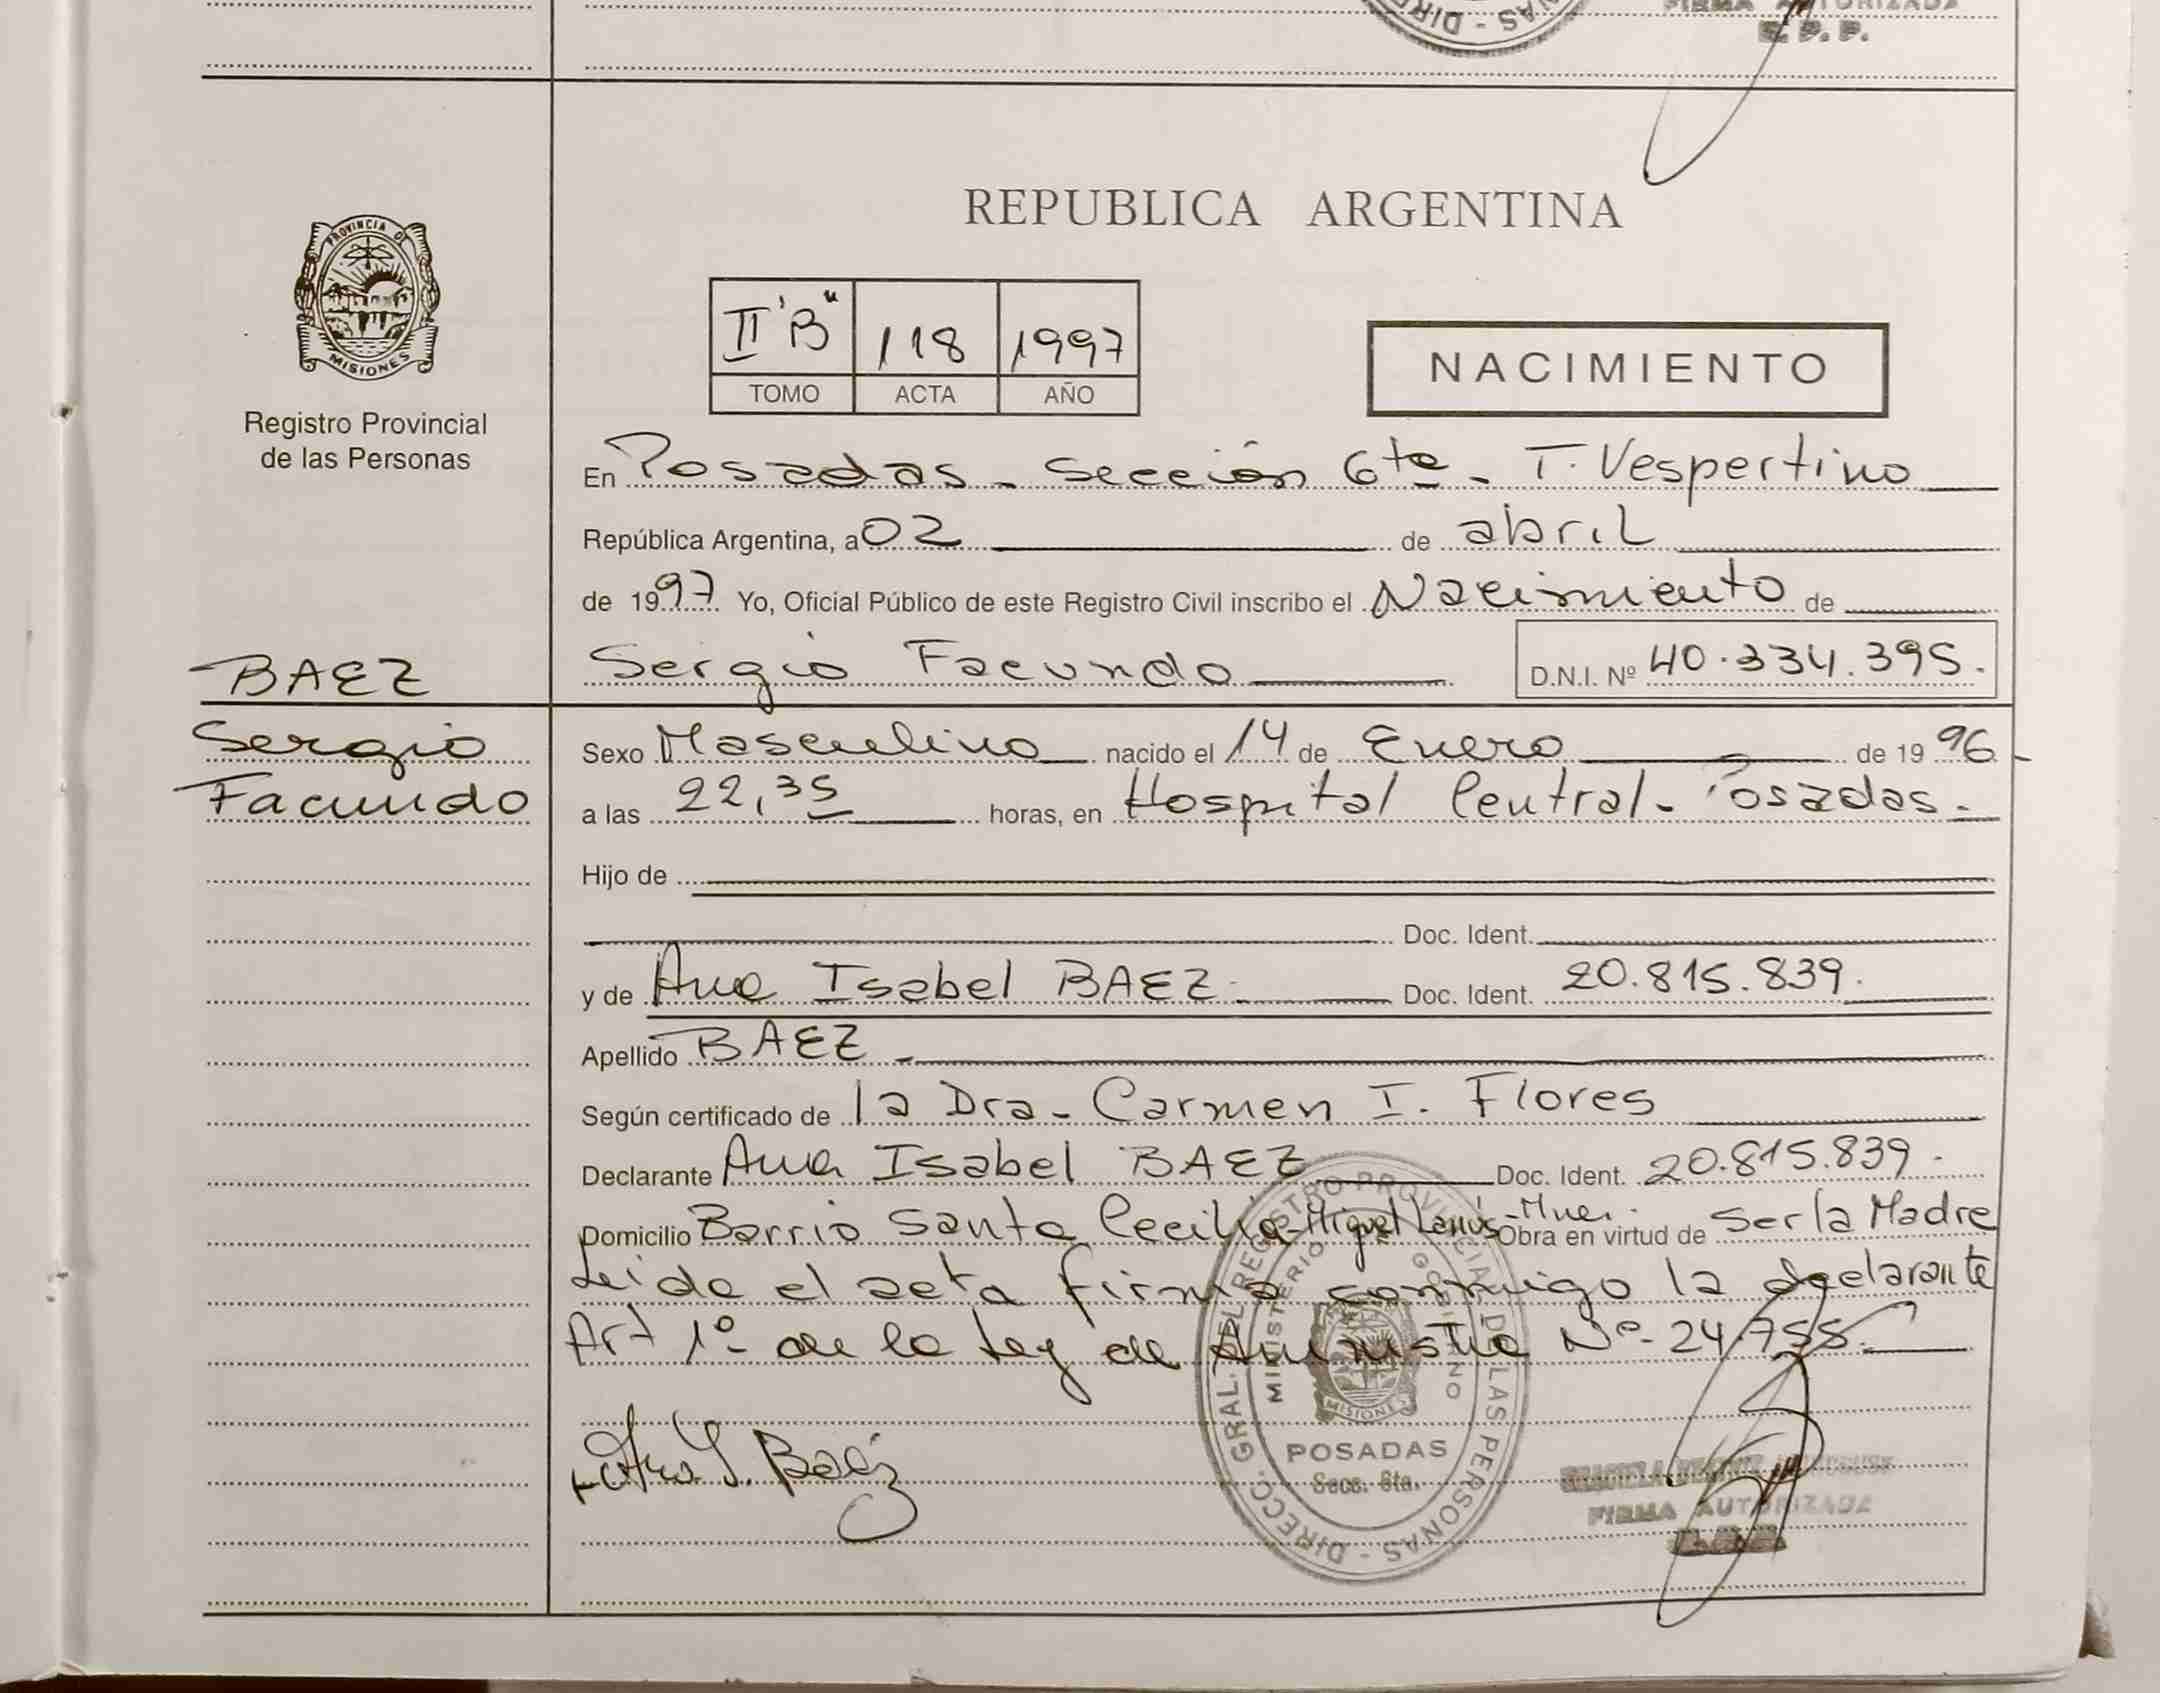 DIRE - NAS
FIRMA AUTORIZADA
PROVINCIA DE
MISIONES
Registro Provincial
de las Personas
REPUBLICA ARGENTINA
II "B" 118 1997
TOMO ACTA AÑO
NACIMIENTO
En Posadas - Sección 6ta - T. Vespertino
República Argentina, a 02 de abril
de 1997 Yo, Oficial Público de este Registro Civil inscribo el Nacimiento de
BAEZ
Sergio Facundo D.N.I. Nº 40.334.395.
Sergio
Facundo
Sexo Masculino nacido el 14 de Enero de 1996.-
a las 22,35 horas, en Hospital Central - Posadas.-
Hijo de
Doc. Ident.
y de Ana Isabel BAEZ.- Doc. Ident. 20.815.839.
Apellido BAEZ.-
Según certificado de la Dra. Carmen I. Flores
Declarante Ana Isabel BAEZ Doc. Ident. 20.815.839.-
Domicilio Barrio Santa Cecilia - Miguel Lanús - Mnes. Obra en virtud de ser la Madre
Leida el acta firma conmigo la declarante
Art 1º de la Ley de Amnistia Nº 24.755.-
Ana I. Baéz
DIRECC. GRAL. DEL REGISTRO PROVINCIAL DE LAS PERSONAS -
MINISTERIO GOBIERNO
MISIONES
POSADAS
Secc. 6ta.
FIRMA AUTORIZADA